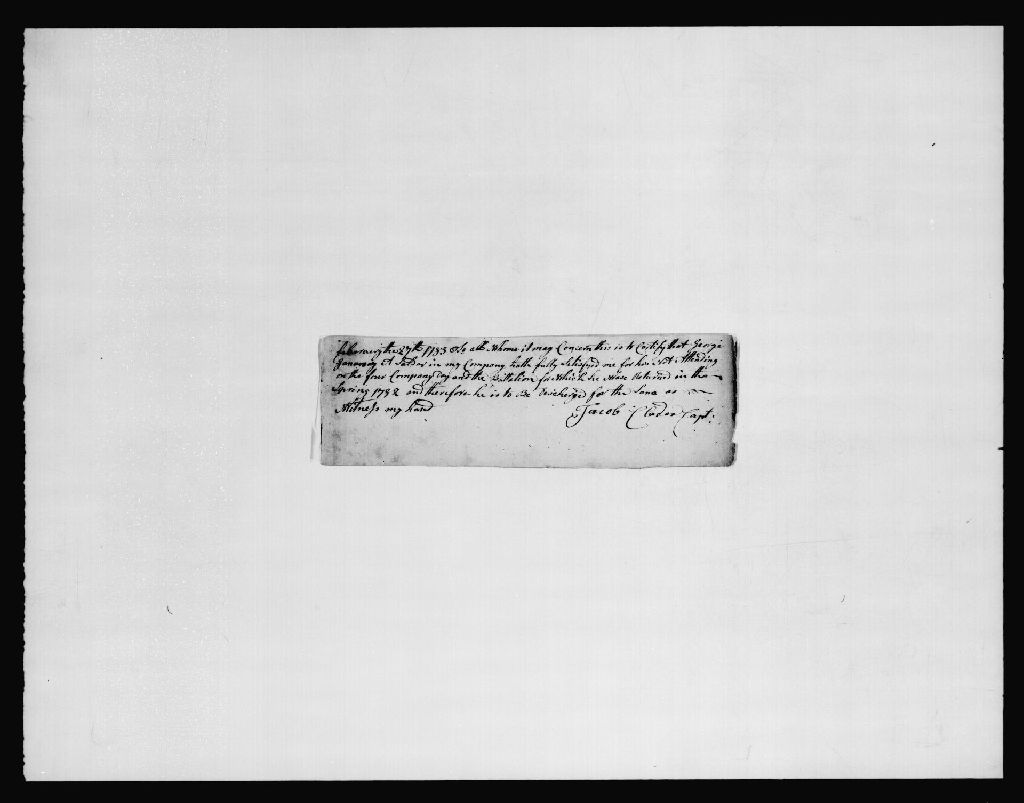 february the 27th 1783 To all Whome it may Concern this is to Certify that George
January A in my Company hath fully Satisfied me for his Not Attending
on the four Company Day and the Battalion for Which he Was Returned in the
Spring 1782 and therefore he is to Be Discharged for the Same as
Witness my hand
Jacob Capt: